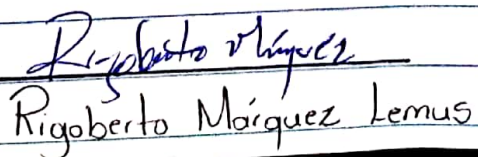 Rigoberto Márquez
Rigoberto Márquez Lemus